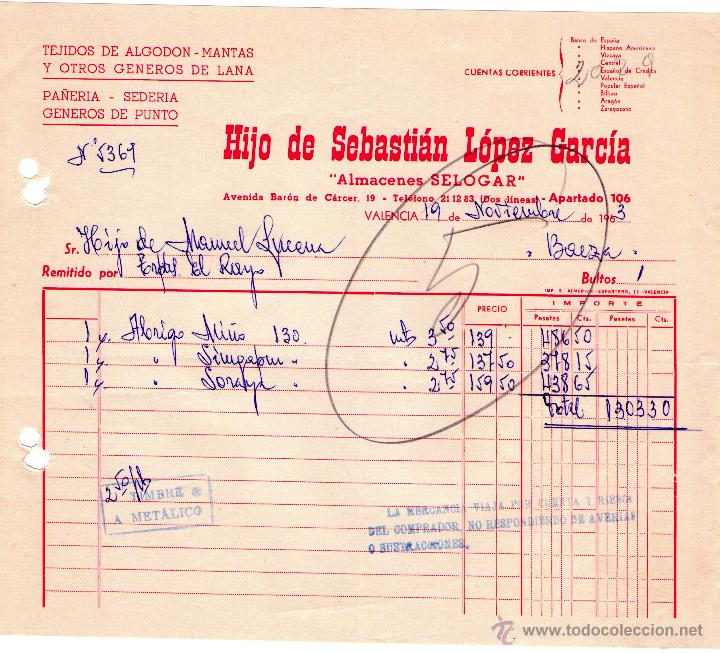 TEJIDOS DE ALGODON - MANTAS
Y OTROS GENEROS DE LANA
PAÑERIA - SEDERIA
GENEROS DE PUNTO
CUENTAS CORRIENTES
Banco de España
" Hispano Americano
" Vizcaya
" Central
" Español de Crédito
" Valencia
" Popular Español
" Bilbao
" Aragón
" Zaragozano
Nº 5369
Hijo de Sebastián López García
"Almacenes SELOGAR"
Avenida Barón de Cárcer, 19 - Teléfono 21 12 83 (Dos líneas) - Apartado 106
VALENCIA 19 de Noviembre de 1963
Sr. Hijo de Manuel Lucena
Baeza
Remitido por del Rayo
Bultos 1
IMP. S. ALMERICH - ESPARTERO, 11 - VALENCIA
PRECIO
IMPORTE
Pesetas Cts. Pesetas Cts.
1 Abrigo Niño 130. mts 3'50 139 486 50
1 " " 2'75 137 50 378 15
1 " Soraya " 2'75 159 50 438 65
Total 1303 30
2'50
TIMBRE
A METÁLICO
LA MERCANCIA VIAJA POR CUENTA Y RIESGO
DEL COMPRADOR, NO RESPONDIENDO DE AVERIAS
O SUSTRACCIONES.
5
© todocoleccion
www.todocoleccion.net